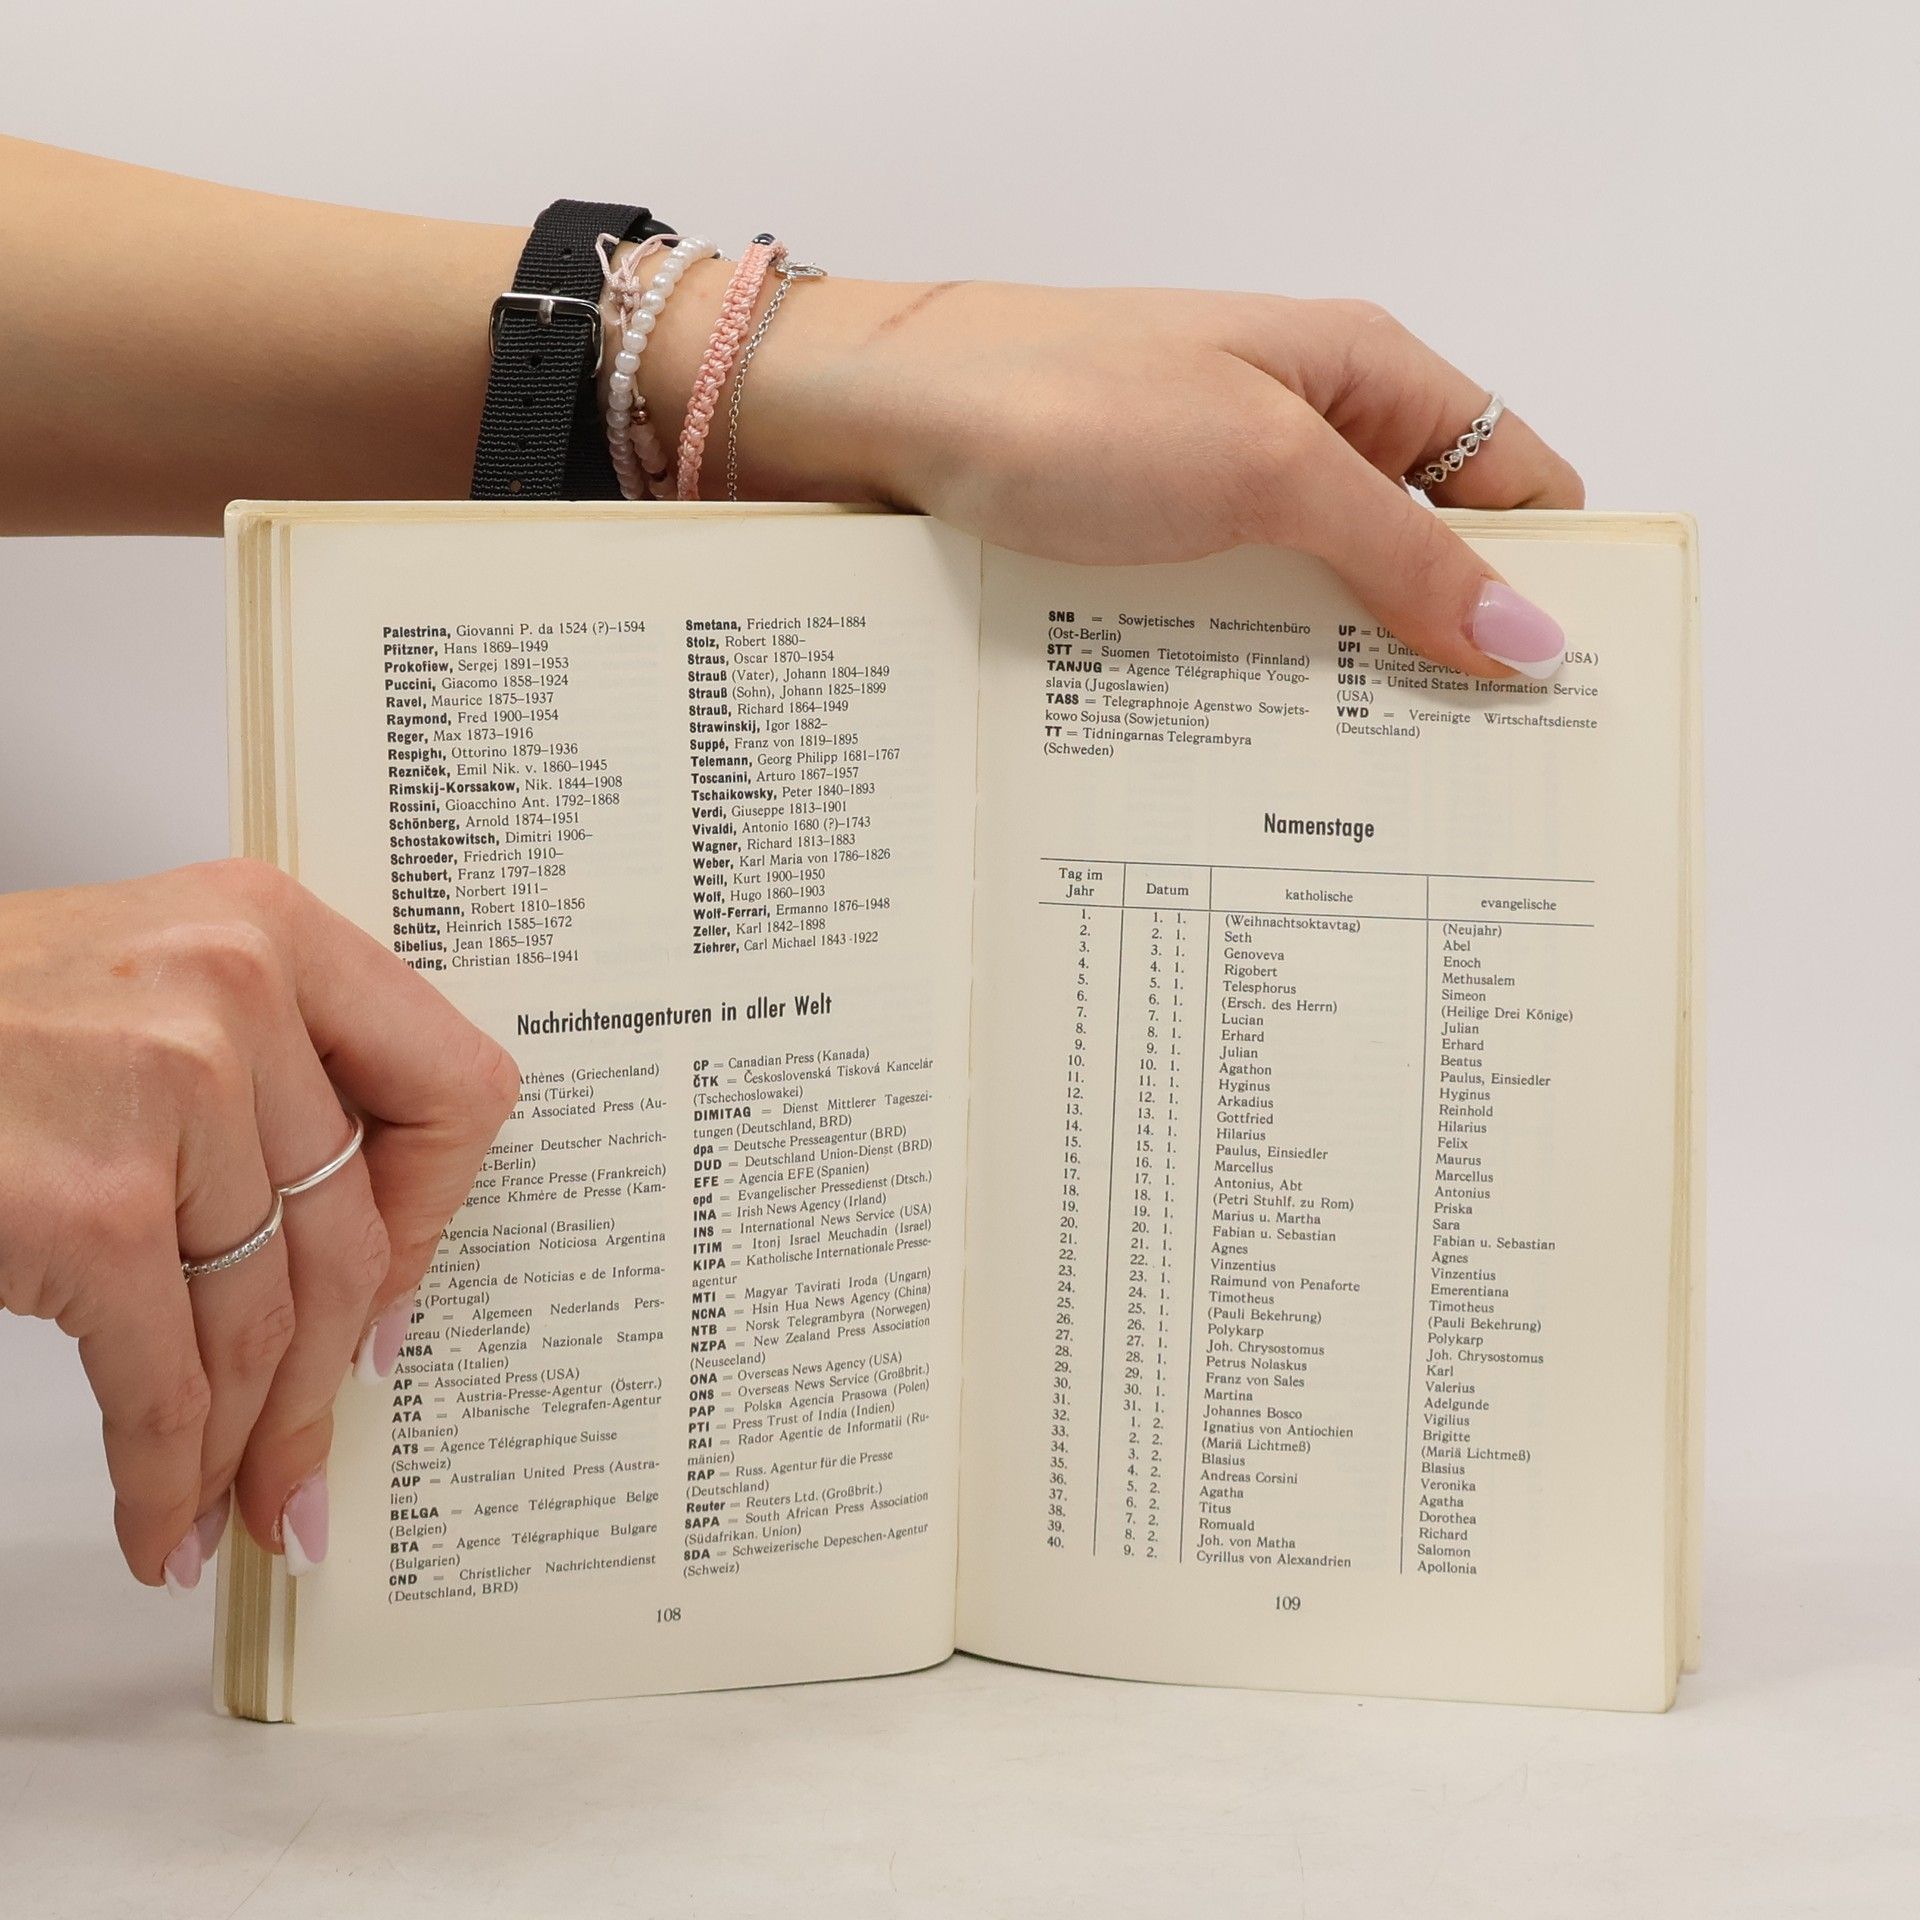 Palestrina, Giovanni P. da 1524 (?)–1594
Pfitzner, Hans 1869–1949
Prokofiew, Sergej 1891–1953
Puccini, Giacomo 1858–1924
Ravel, Maurice 1875–1937
Raymond, Fred 1900–1954
Reger, Max 1873–1916
Respighi, Ottorino 1879–1936
Rezniček, Emil Nik. v. 1860–1945
Rimskij-Korssakow, Nik. 1844–1908
Rossini, Gioacchino Ant. 1792–1868
Schönberg, Arnold 1874–1951
Schostakowitsch, Dimitri 1906–
Schroeder, Friedrich 1910–
Schubert, Franz 1797–1828
Schultze, Norbert 1911–
Schumann, Robert 1810–1856
Schütz, Heinrich 1585–1672
Sibelius, Jean 1865–1957
nding, Christian 1856–1941
Smetana, Friedrich 1824–1884
Stolz, Robert 1880–
Straus, Oscar 1870–1954
Strauß (Vater), Johann 1804–1849
Strauß (Sohn), Johann 1825–1899
Strauß, Richard 1864–1949
Strawinskij, Igor 1882–
Suppé, Franz von 1819–1895
Telemann, Georg Philipp 1681–1767
Toscanini, Arturo 1867–1957
Tschaikowsky, Peter 1840–1893
Verdi, Giuseppe 1813–1901
Vivaldi, Antonio 1680 (?)–1743
Wagner, Richard 1813–1883
Weber, Karl Maria von 1786–1826
Weill, Kurt 1900–1950
Wolf, Hugo 1860–1903
Wolf-Ferrari, Ermanno 1876–1948
Zeller, Karl 1842–1898
Ziehrer, Carl Michael 1843-1922
Nachrichtenagenturen in aller Welt
Athènes (Griechenland)
ansi (Türkei)
an Associated Press (Au-
emeiner Deutscher Nachrich-
t-Berlin)
nce France Presse (Frankreich)
gence Khmère de Presse (Kam-
Agencia Nacional (Brasilien)
= Association Noticiosa Argentina
entinien)
= Agencia de Noticias e de Informa-
s (Portugal)
NP = Algemeen Nederlands Pers-
ureau (Niederlande)
ANSA = Agenzia Nazionale Stampa
Associata (Italien)
AP = Associated Press (USA)
APA = Austria-Presse-Agentur (Österr.)
ATA = Albanische Telegrafen-Agentur
(Albanien)
ATS = Agence Télégraphique Suisse
(Schweiz)
AUP = Australian United Press (Austra-
lien)
BELGA = Agence Télégraphique Belge
(Belgien)
BTA = Agence Télégraphique Bulgare
(Bulgarien)
CND = Christlicher Nachrichtendienst
(Deutschland, BRD)
CP = Canadian Press (Kanada)
ČTK = Československá Tisková Kancelár
(Tschechoslowakei)
DIMITAG = Dienst Mittlerer Tageszei-
tungen (Deutschland, BRD)
dpa = Deutsche Presseagentur (BRD)
DUD = Deutschland Union-Dienst (BRD)
EFE = Agencia EFE (Spanien)
epd = Evangelischer Pressedienst (Dtsch.)
INA = Irish News Agency (Irland)
INS = International News Service (USA)
ITIM = Itonj Israel Meuchadin (Israel)
KIPA = Katholische Internationale Presse-
agentur
MTI = Magyar Tavirati Iroda (Ungarn)
NCNA = Hsin Hua News Agency (China)
NTB = Norsk Telegrambyra (Norwegen)
NZPA = New Zealand Press Association
(Neuseeland)
ONA = Overseas News Agency (USA)
ONS = Overseas News Service (Großbrit.)
PAP = Polska Agencia Prasowa (Polen)
PTI = Press Trust of India (Indien)
RAI = Rador Agentie de Informatii (Ru-
mänien)
RAP = Russ. Agentur für die Presse
(Deutschland)
Reuter = Reuters Ltd. (Großbrit.)
SAPA = South African Press Association
(Südafrikan. Union)
SDA = Schweizerische Depeschen-Agentur
(Schweiz)
108
SNB = Sowjetisches Nachrichtenbüro
(Ost-Berlin)
STT = Suomen Tietotoimisto (Finnland)
TANJUG = Agence Télégraphique Yougo-
slavia (Jugoslawien)
TASS = Telegraphnoje Agenstwo Sowjets-
kowo Sojusa (Sowjetunion)
TT = Tidningarnas Telegrambyra
(Schweden)
UP =
UPI = USA)
US = United
USIS = United States Information Service
(USA)
VWD = Vereinigte Wirtschaftsdienste
(Deutschland)
Namenstage
Tag im Jahr Datum katholische evangelische
1. 1. 1. (Weihnachtsoktavtag) (Neujahr)
2. 2. 1. Seth Abel
3. 3. 1. Genoveva Enoch
4. 4. 1. Rigobert Methusalem
5. 5. 1. Telesphorus Simeon
6. 6. 1. (Ersch. des Herrn) (Heilige Drei Könige)
7. 7. 1. Lucian Julian
8. 8. 1. Erhard Erhard
9. 9. 1. Julian Beatus
10. 10. 1. Agathon Paulus, Einsiedler
11. 11. 1. Hyginus Hyginus
12. 12. 1. Arkadius Reinhold
13. 13. 1. Gottfried Hilarius
14. 14. 1. Hilarius Felix
15. 15. 1. Paulus, Einsiedler Maurus
16. 16. 1. Marcellus Marcellus
17. 17. 1. Antonius, Abt Antonius
18. 18. 1. (Petri Stuhlf. zu Rom) Priska
19. 19. 1. Marius u. Martha Sara
20. 20. 1. Fabian u. Sebastian Fabian u. Sebastian
21. 21. 1. Agnes Agnes
22. 22. 1. Vinzentius Vinzentius
23. 23. 1. Raimund von Penaforte Emerentiana
24. 24. 1. Timotheus Timotheus
25. 25. 1. (Pauli Bekehrung) (Pauli Bekehrung)
26. 26. 1. Polykarp Polykarp
27. 27. 1. Joh. Chrysostomus Joh. Chrysostomus
28. 28. 1. Petrus Nolaskus Karl
29. 29. 1. Franz von Sales Valerius
30. 30. 1. Martina Adelgunde
31. 31. 1. Johannes Bosco Vigilius
32. 1. 2. Ignatius von Antiochien Brigitte
33. 2. 2. (Mariä Lichtmeß) (Mariä Lichtmeß)
34. 3. 2. Blasius Blasius
35. 4. 2. Andreas Corsini Veronika
36. 5. 2. Agatha Agatha
37. 6. 2. Titus Dorothea
38. 7. 2. Romuald Richard
39. 8. 2. Joh. von Matha Salomon
40. 9. 2. Cyrillus von Alexandrien Apollonia
109